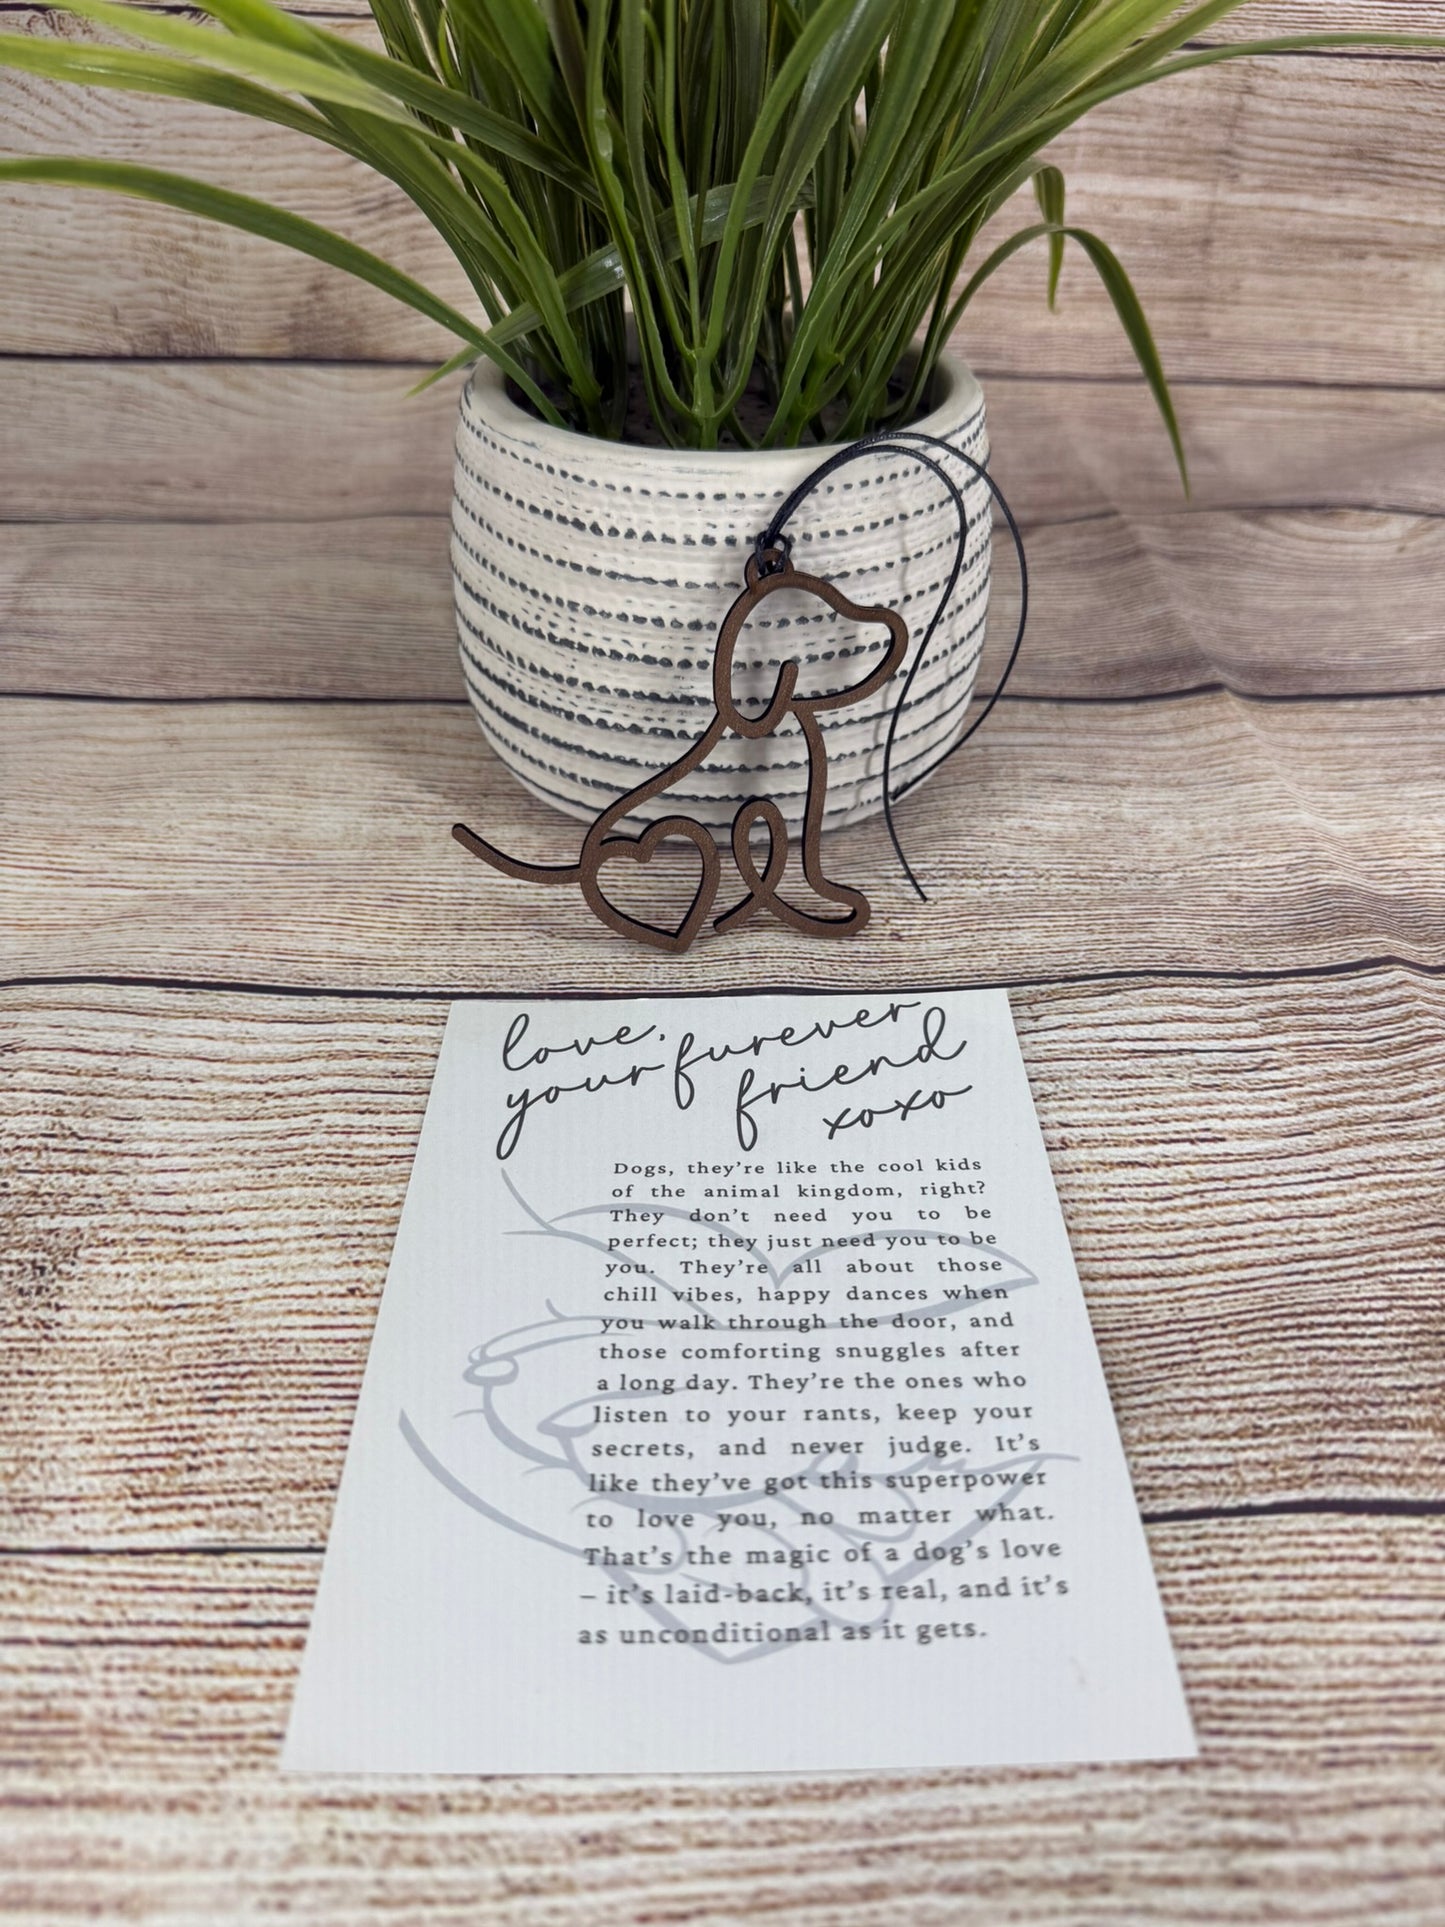 love,
your furever
friend
xoxo
Dogs, they’re like the cool kids
of the animal kingdom, right?
They don’t need you to be
perfect; they just need you to be
you. They’re all about those
chill vibes, happy dances when
you walk through the door, and
those comforting snuggles after
a long day. They’re the ones who
listen to your rants, keep your
secrets, and never judge. It’s
like they’ve got this superpower
to love you, no matter what.
That’s the magic of a dog’s love
– it’s laid-back, it’s real, and it’s
as unconditional as it gets.